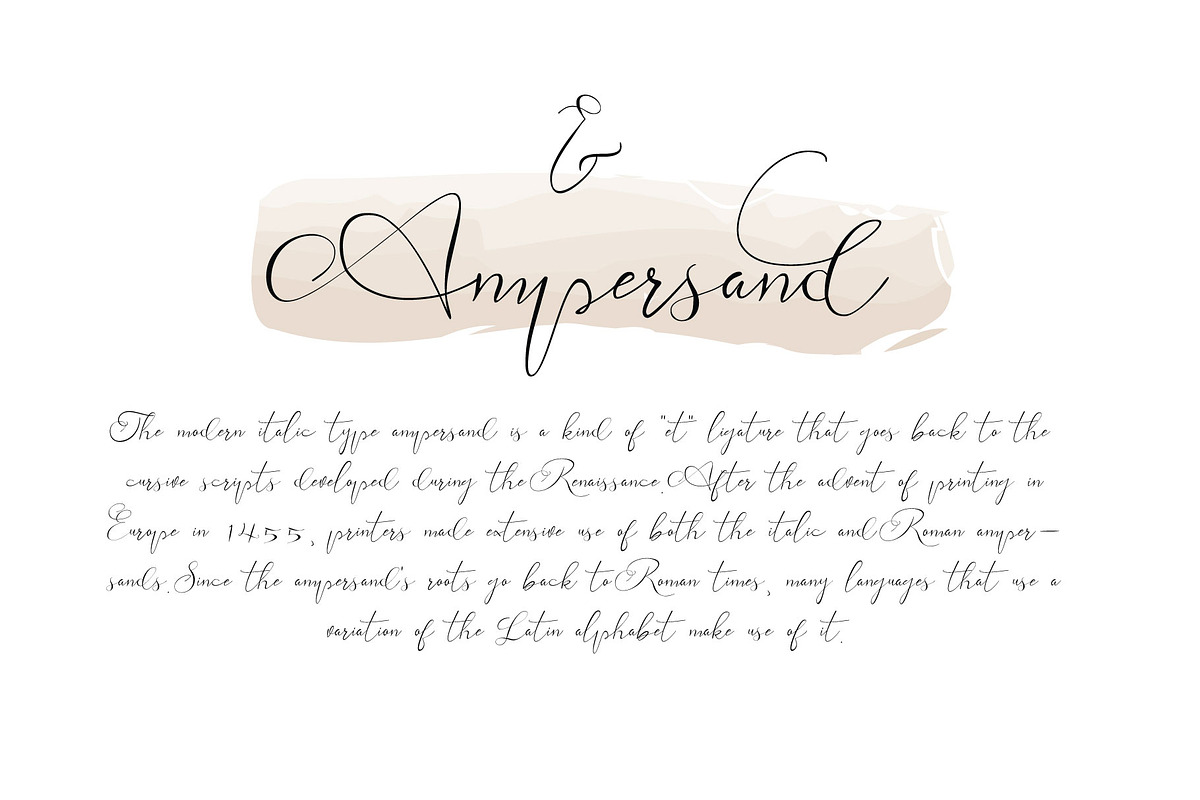 &
Ampersand
The modern italic type ampersand is a kind of "et" ligature that goes back to the
cursive scripts developed during the Renaissance. After the advent of printing in
Europe in 1455, printers made extensive use of both the italic and Roman amper-
sands. Since the ampersand's roots go back to Roman times, many languages that use a
variation of the Latin alphabet make use of it.